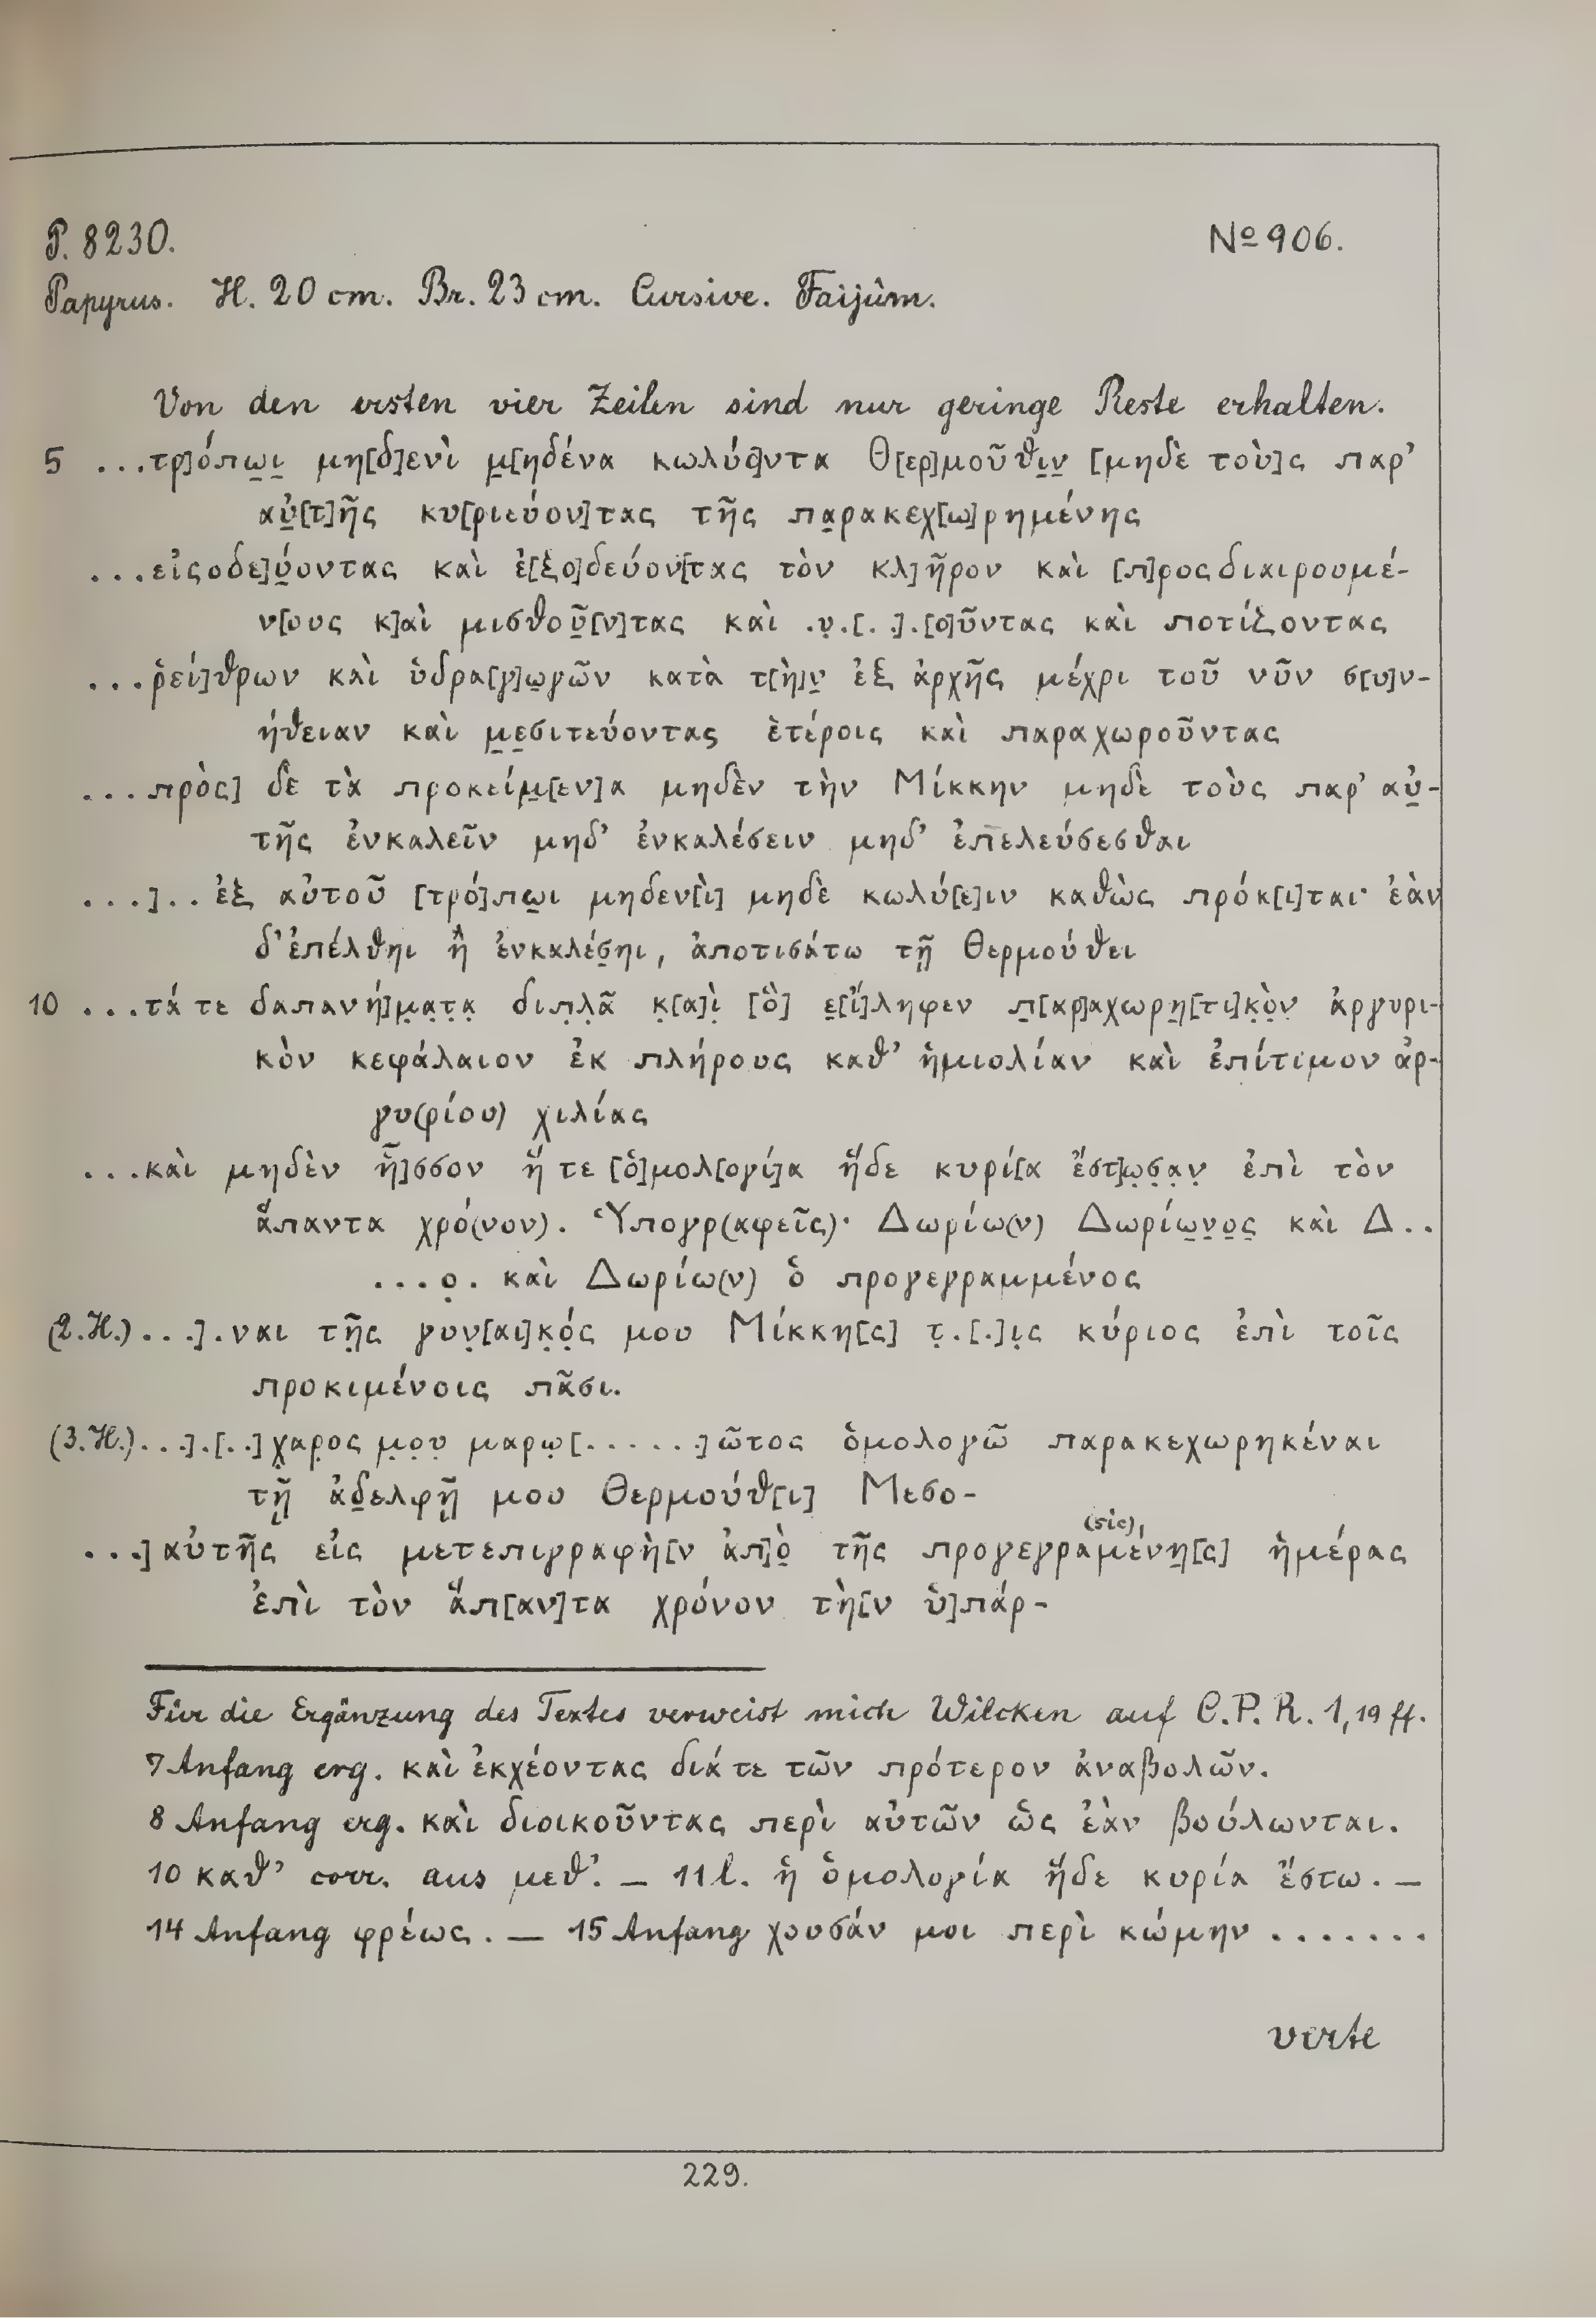 P. 8230. № 906.
Papyrus. H. 20 cm. Br. 23 cm. Cursive. Faijûm.
Von den ersten vier Zeilen sind nur geringe Reste erhalten.
5 ...τρ]όπω̣ι̣ μη[δ]ενὶ μ̣[ηδένα κωλύο]ντα Θ[ερ]μοῦθι̣ν̣ [μηδὲ τοὺ]ς παρ’
αὐ̣[τ]ῆς κυ[ριεύον]τας τῆς πα̣ρακεχ[ω]ρημένης
...εἰςοδε]ύ̣οντας καὶ ἐ[ξο]δεύον[τας τὸν κλ]ῆρον καὶ [π]ροςδιαιρουμέ-
ν[ους κ]αὶ μισθοῦ̣[ν]τας καὶ .ν̣.[. .].[ο]ῦντας καὶ ποτίζοντας
...ῥεί]θρων καὶ ὑδρα[γ]ω̣γῶν κατὰ τ[ὴ]ν̣ ἐξ ἀρχῆς μέχρι τοῦ νῦν σ[υ]ν-
ήθειαν καὶ μ̣ε̣σιτεύοντας ἑτέροις καὶ παραχωροῦντας
...πρὸς] δὲ τὰ προκείμ̣[εν]α μηδὲν τὴν Μίκκην μηδὲ τοὺς παρ’ αὐ̣-
τῆς ἐνκαλεῖν μηδ’ ἐνκαλέσειν μηδ’ ἐπελεύσεσθαι
...]..ἐξ αὐτοῦ [τρό]πω̣ι μηδεν[ὶ] μηδὲ κωλύ[ε]ιν καθὼς πρόκ[ι]ται· ἐὰν
δ’ἐπέλθηι ἢ ἐνκαλέσ̣ηι, ἀποτισάτω τῇ Θερμούθει
10 ...τά τε δαπανή]μ̣α̣τ̣α̣ διπ̣λ̣ᾶ κ̣[α]ὶ̣ [ὃ] ε̣[ἴ]ληφεν π̣[αρ]αχωρη̣[τι]κ̣ὸ̣ν̣ ἀργυρι-
κὸν κεφάλαιον ἐκ πλήρους καθ’ ἡμιολίαν καὶ ἐπίτιμον ἀρ-
γυ(ρίου) χιλίας
...καὶ μηδὲν ἧ]σσον ἥ τε [ὁ]μολ[ογί]α ἥδε κυρί[α ἔστ]ω̣σ̣α̣ν̣ ἐπὶ τὸν
ἅπαντα χρό(νον). Ὑπογρ(αφεῖς)· Δωρίω(ν) Δωρίω̣ν̣ο̣ς̣ καὶ Δ..
...ο̣. καὶ Δωρίω(ν) ὁ προγεγραμμένος
(2.H.)...].ναι τῆ̣ς γυν̣[αι]κ̣ό̣ς μου Μίκκη[ς] τ̣.[.]ι̣ς κύριος ἐπὶ τοῖς
προκιμένοις πᾶσι.
(3.H.)...].[..]χ̣αρ̣ος μ̣ο̣υ̣ μαρω̣[......]ῶτος ὁμολογῶ παρακεχωρηκέναι
τῇ̣ ἀδ̣ελφῇ̣ μου Θερμούθ[ι] Μεσο-
...]αὐτῆς εἰς μετεπιγραφὴ[ν ἀπ]ὸ̣ τῆς προγεγραμένη̣[ς] (sic) ἡμέρας
ἐπὶ τὸν ἅπ[αν]τα χρόνον τὴ[ν ὑ]πάρ-
Für die Ergänzung des Textes verweist mich Wilcken auf C.P.R. 1, 19 ff.
7 Anfang erg. καὶ ἐκχέοντας διά τε τῶν πρότερον ἀναβολῶν.
8 Anfang erg. καὶ διοικοῦντας περὶ αὐτῶν ὡς ἐὰν βούλωνται.
10 καθ’ corr. aus μεθ’. — 11 l. ἡ ὁμολογία ἥδε κυρία ἔστω. —
14 Anfang φρέως. — 15 Anfang χουσάν μοι περὶ κώμην .......
verte
229.